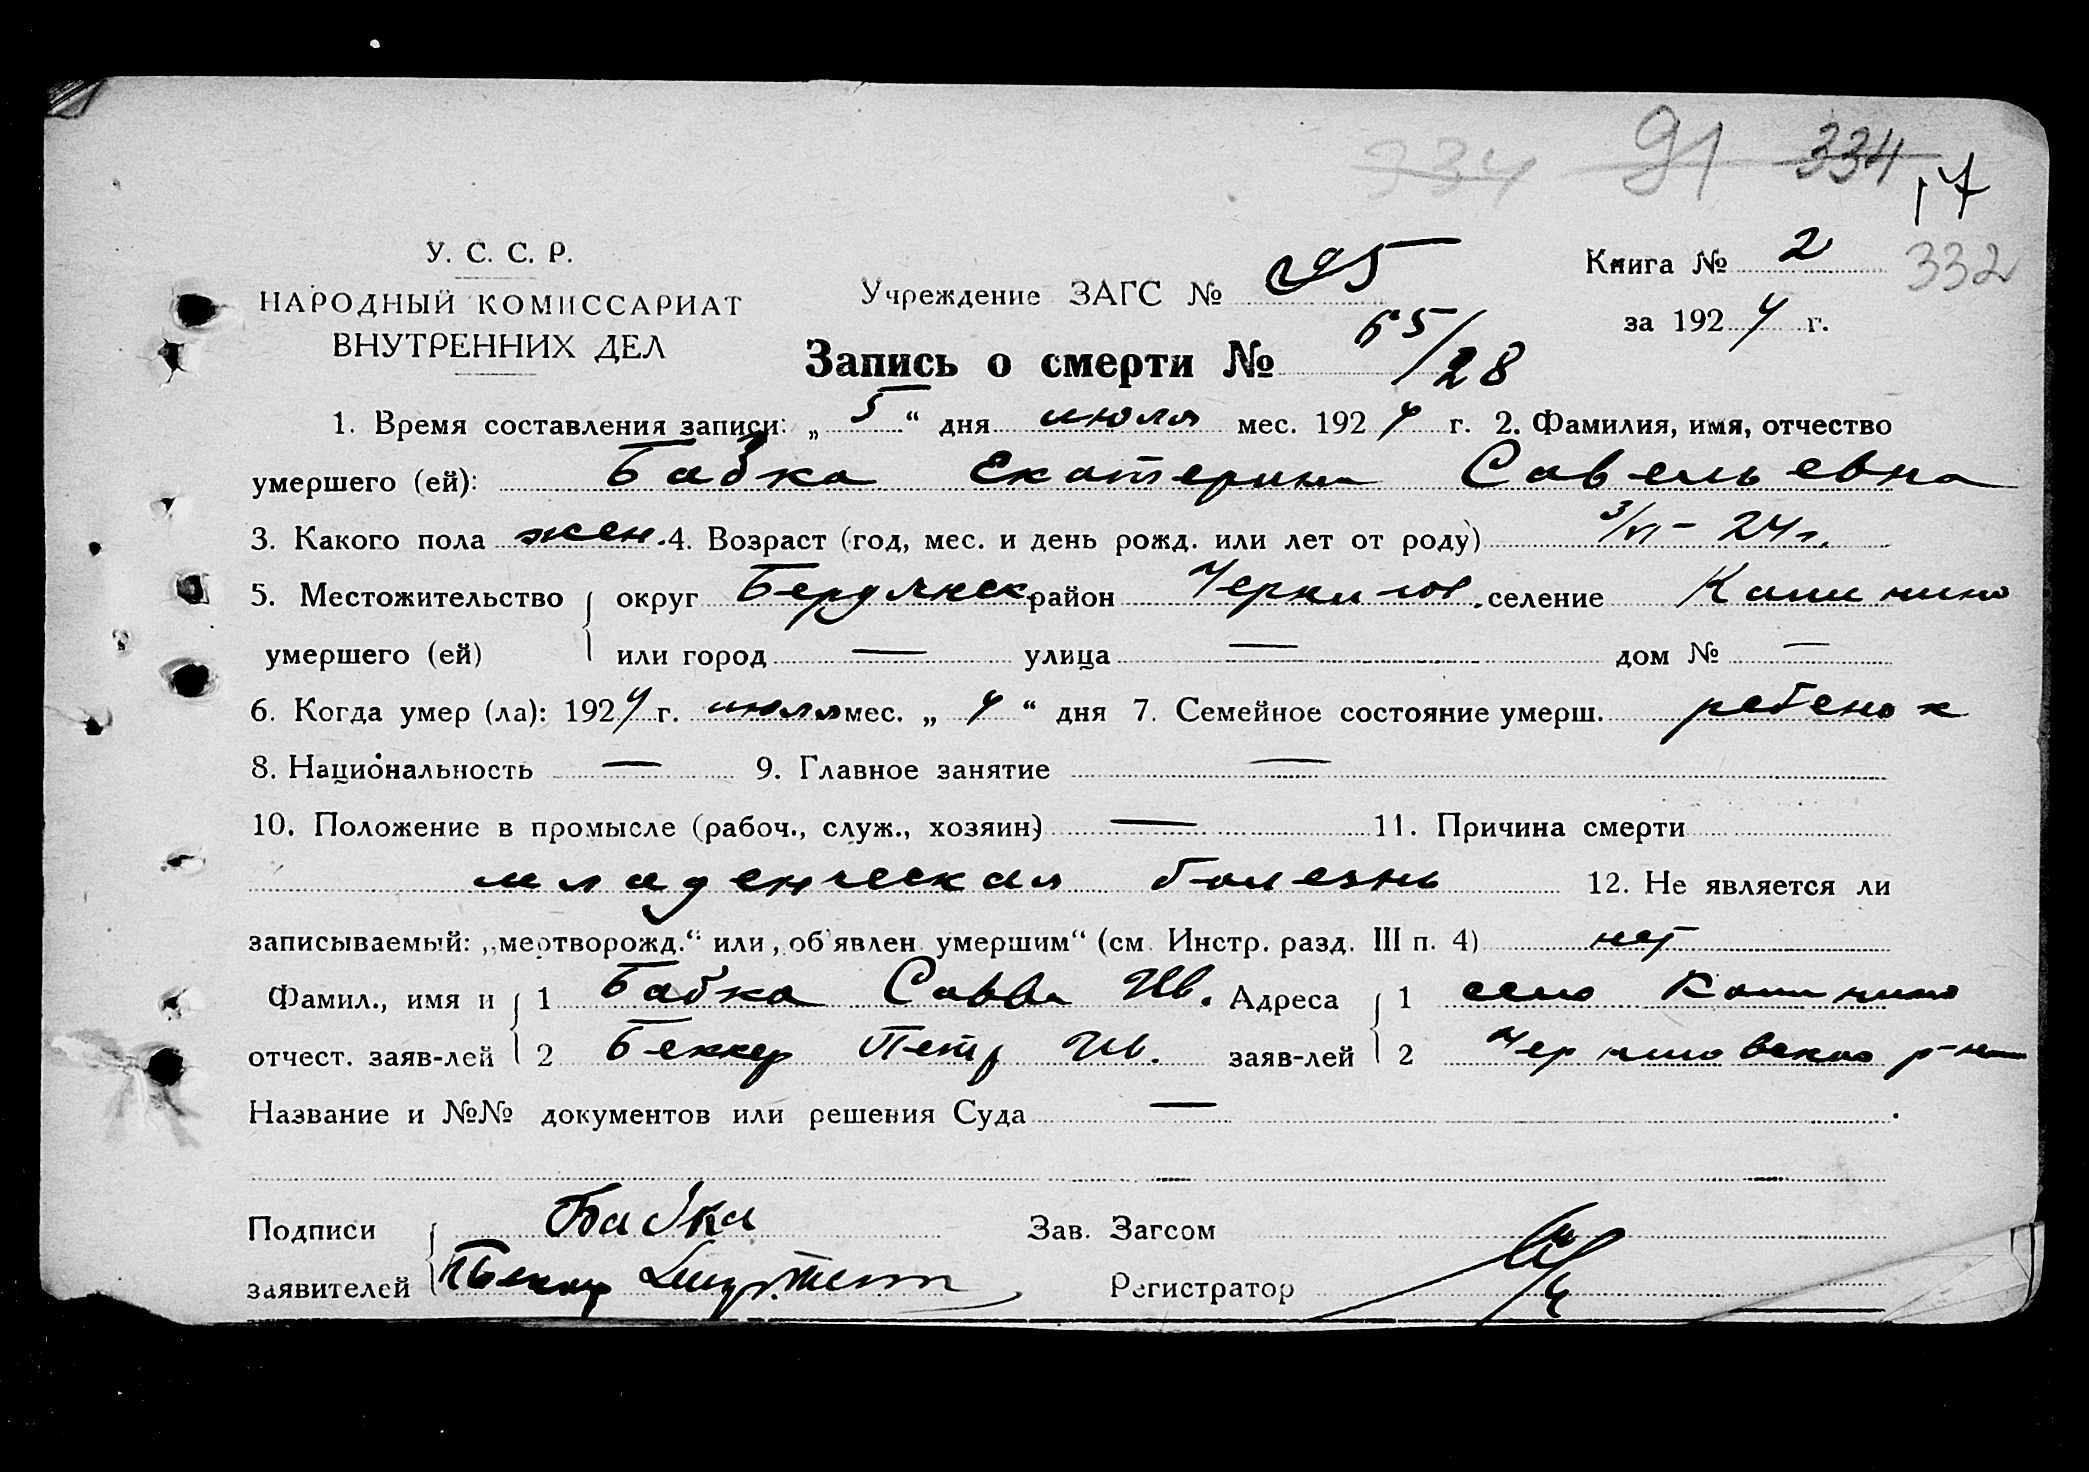 334 91 334 17
У. С. С. Р.
НАРОДНЫЙ КОМИССАРИАТ
ВНУТРЕННИХ ДЕЛ
Учреждение ЗАГС № 95
Книга № 2 332
за 1924 г.
Запись о смерти № 65/28
1. Время составления записи: „ 5 “ дня июля мес. 1924 г. 2. Фамилия, имя, отчество
умершего (ей): Бабка Екатерина Савельевна
3. Какого пола жен. 4. Возраст (год, мес. и день рожд. или лет от роду) 3/VI - 24 г.
5. Местожительство округ Бердянск район селение
умершего (ей) или город — улица — дом № —
6. Когда умер (ла): 1924 г. июля мес. „ 4 “ дня 7. Семейное состояние умерш. ребенок
8. Национальность — 9. Главное занятие —
10. Положение в промысле (рабоч., служ., хозяин) — 11. Причина смерти
младенческая болезнь 12. Не является ли
записываемый: „мертворожд.“ или „об'явлен умершим“ (см. Инстр. разд. III п. 4) нет
Фамил., имя и 1 Бабка Савва Ив. Адреса 1 село
отчест. заяв-лей 2 Беккер Петр Ив. заяв-лей 2
Название и №№ документов или решения Суда —
Подписи Бабка Зав. Загсом
заявителей Регистратор